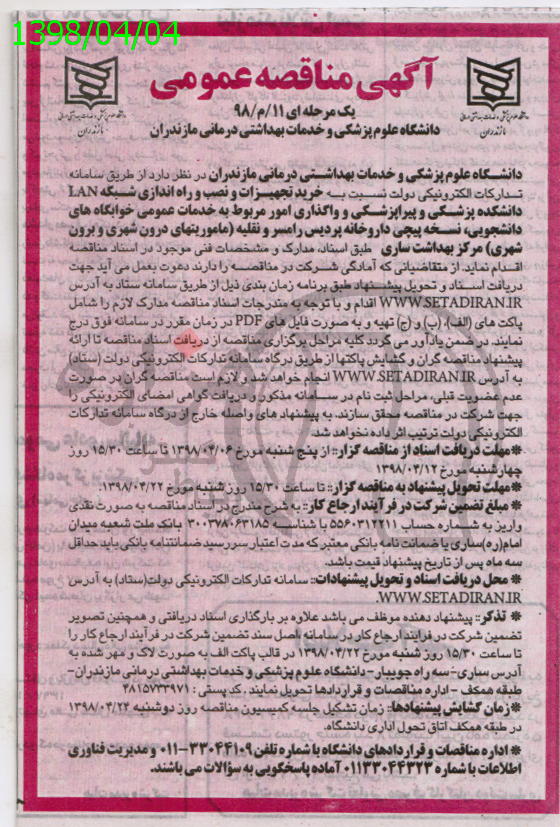 1398/04/04
آگهی مناقصه عمومی
یک مرحله ای ۱۱/م/۹۸
دانشگاه علوم پزشکی و خدمات بهداشتی درمانی مازندران
دانشگاه علوم پزشکی و خدمات بهداشتی درمانی مازندران در نظر دارد از طریق سامانه
تدارکات الکترونیکی دولت نسبت به خرید تجهیزات و نصب و راه اندازی شبکه LAN
دانشکده پزشکی و پیراپزشکی و واگذاری امور مربوط به خدمات عمومی خوابگاه های
دانشجویی، نسخه پیچی داروخانه پردیس رامسر و نقلیه (ماموریتهای درون شهری و برون
شهری) مرکز بهداشت ساری طبق اسناد، مدارک و مشخصات فنی موجود در اسناد مناقصه
اقدام نماید. از متقاضیانی که آمادگی شرکت در مناقصه را دارند دعوت بعمل می آید جهت
دریافت اسناد و تحویل پیشنهاد طبق برنامه زمان بندی ذیل از طریق سامانه ستاد به آدرس
WWW.SETADIRAN.IR اقدام و با توجه به مندرجات اسناد مناقصه مدارک لازم را شامل
پاکت های (الف)، (ب) و (ج) تهیه و به صورت فایل های PDF در زمان مقرر در سامانه فوق درج
نمایند. در ضمن یادآور می گردد کلیه مراحل برگزاری مناقصه از دریافت اسناد مناقصه تا ارائه
پیشنهاد مناقصه گران و گشایش پاکتها از طریق درگاه سامانه تدارکات الکترونیکی دولت (ستاد)
به آدرس WWW.SETADIRAN.IR انجام خواهد شد و لازم است مناقصه گران در صورت
عدم عضویت قبلی، مراحل ثبت نام در سامانه مذکور و دریافت گواهی امضای الکترونیکی را
جهت شرکت در مناقصه محقق سازند. به پیشنهاد های واصله خارج از درگاه سامانه تدارکات
الکترونیکی دولت ترتیب اثر داده نخواهد شد.
* مهلت دریافت اسناد از مناقصه گزار:: از پنج شنبه مورخ ۱۳۹۸/۰۴/۰۶ تا ساعت ۱۵/۳۰ روز
چهارشنبه مورخ ۱۳۹۸/۰۴/۱۲
* مهلت تحویل پیشنهاد به مناقصه گزار:: تا ساعت ۱۵/۳۰ روز شنبه مورخ ۱۳۹۸/۰۴/۲۲.
* مبلغ تضمین شرکت در فرآیند ارجاع کار:: به شرح مندرج در اسناد مناقصه به صورت نقدی
واریز به شماره حساب ۵۵۶۰۳۱۲۲۱۱ با شناسه ۳۰۰۳۷۸۰۶۳۱۸۵ بانک ملت شعبه میدان
امام(ره)ساری یا ضمانت نامه بانکی معتبر که مدت اعتبار سررسید ضمانتنامه بانکی باید حداقل
سه ماه پس از تاریخ پیشنهاد قیمت باشد.
* محل دریافت اسناد و تحویل پیشنهادات:: سامانه تدارکات الکترونیکی دولت(ستاد) به آدرس
WWW.SETADIRAN.IR.
* تذکر:: پیشنهاد دهنده موظف می باشد علاوه بر بارگذاری اسناد دریافتی و همچنین تصویر
تضمین شرکت در فرایند ارجاع کار در سامانه، اصل سند تضمین شرکت در فرآیند ارجاع کار را
تا ساعت ۱۵/۳۰ روز شنبه مورخ ۱۳۹۸/۰۴/۲۲ در قالب پاکت الف به صورت لاک و مهر شده به
آدرس ساری-سه راه جویبار- دانشگاه علوم پزشکی و خدمات بهداشتی درمانی مازندران-
طبقه همکف - اداره مناقصات و قراردادها تحویل نمایند. کد پستی : ۴۸۱۵۷۳۳۹۷۱
* زمان گشایش پیشنهادها:: زمان تشکیل جلسه کمیسیون مناقصه روز دوشنبه ۱۳۹۸/۰۴/۲۴
در طبقه همکف اتاق تحول اداری دانشگاه.
* اداره مناقصات و قراردادهای دانشگاه با شماره تلفن ۳۳۰۴۴۱۰۹-۰۱۱ و مدیریت فناوری
اطلاعات با شماره ۰۱۱۳۳۰۴۴۳۲۳ آماده پاسخگویی به سؤالات می باشند.